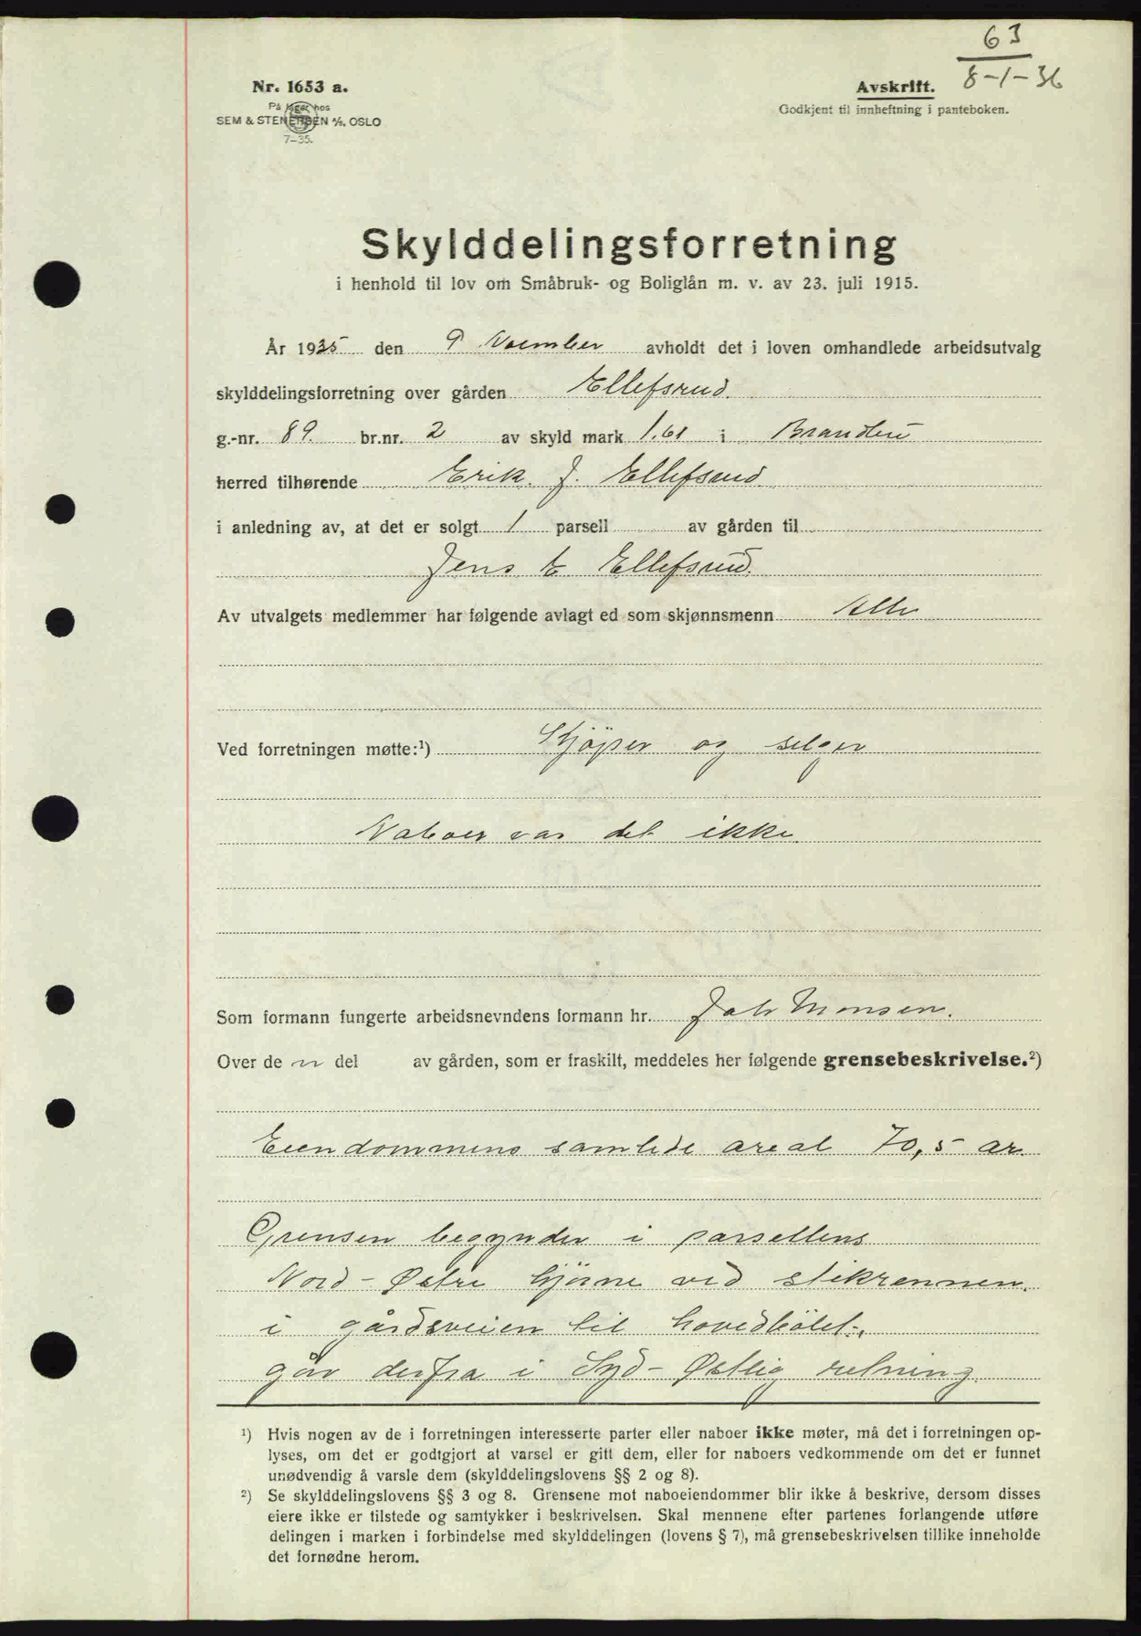 63
8-1-36
Nr. 1653 a.
På lager hos
SEM & STENERSEN A/S. OSLO
7-35.
Avskrift.
Godkjent til innheftning i panteboken.
Skylddelingsforretning
i henhold til lov om Småbruk- og Boliglån m. v. av 23. juli 1915.
År 1935 den 9 November avholdt det i loven omhandlede arbeidsutvalg
skylddelingsforretning over gården Ellefsrud.
g.-nr. 89. br.nr. 2 av skyld mark 1.61 i Brandbu
herred tilhørende Erik. J. Ellefsrud
i anledning av, at det er solgt 1 parsell av gården til
Jens E Ellefsrud.
Av utvalgets medlemmer har følgende avlagt ed som skjønnsmenn Alle
Ved forretningen møtte:¹) Kjöper og selger
Naboer var det ikke.
Som formann fungerte arbeidsnevndens formann hr. Joh Monsen.
Over de n del av gården, som er fraskilt, meddeles her følgende grensebeskrivelse.²)
Eiendommens samlede areal 70,5 ar.
Grensen begynder i parsellens
Nord-Østre hjörne ved stikrennen.
i gårdsveien til hovedbölet.
går derfra i Syd-Østlig retning
¹) Hvis nogen av de i forretningen interesserte parter eller naboer ikke møter, må det i forretningen op-
lyses, om det er godtgjort at varsel er gitt dem, eller for naboers vedkommende om det er funnet
unødvendig å varsle dem (skylddelingslovens §§ 2 og 8).
²) Se skylddelingslovens §§ 3 og 8. Grensene mot naboeiendommer blir ikke å beskrive, dersom disses
eiere ikke er tilstede og samtykker i beskrivelsen. Skal mennene efter partenes forlangende utføre
delingen i marken i forbindelse med skylddelingen (lovens § 7), må grensebeskrivelsen tillike inneholde
det fornødne herom.